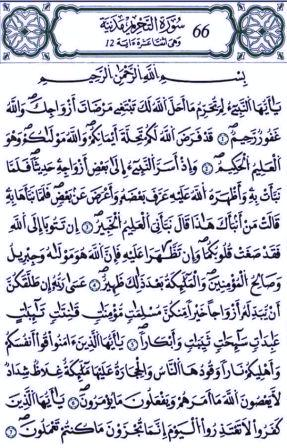 66 سُورَةُ التَّحْرِيمِ مَدَنِيَّةٌ
وَهِيَ اثْنَتَا عَشْرَةَ آيَةً 12
بِسْمِ اللَّهِ الرَّحْمَنِ الرَّحِيمِ
يَا أَيُّهَا النَّبِيُّ لِمَ تُحَرِّمُ مَا أَحَلَّ اللَّهُ لَكَ تَبْتَغِي مَرْضَاتَ أَزْوَاجِكَ وَاللَّهُ
غَفُورٌ رَحِيمٌ ① قَدْ فَرَضَ اللَّهُ لَكُمْ تَحِلَّةَ أَيْمَانِكُمْ وَاللَّهُ مَوْلَاكُمْ وَهُوَ
الْعَلِيمُ الْحَكِيمُ ② وَإِذْ أَسَرَّ النَّبِيءُ إِلَى بَعْضِ أَزْوَاجِهِ حَدِيثًا فَلَمَّا
نَبَّأَتْ بِهِ وَأَظْهَرَهُ اللَّهُ عَلَيْهِ عَرَّفَ بَعْضَهُ وَأَعْرَضَ عَنْ بَعْضٍ فَلَمَّا نَبَّأَهَا بِهِ
قَالَتْ مَنْ أَنْبَأَكَ هَذَا قَالَ نَبَّأَنِيَ الْعَلِيمُ الْخَبِيرُ ③ إِنْ تَتُوبَا إِلَى اللَّهِ
فَقَدْ صَغَتْ قُلُوبُكُمَا وَإِنْ تَظَّاهَرَا عَلَيْهِ فَإِنَّ اللَّهَ هُوَ مَوْلَاهُ وَجِبْرِيلُ
وَصَالِحُ الْمُؤْمِنِينَ وَالْمَلَائِكَةُ بَعْدَ ذَلِكَ ظَهِيرٌ ④ عَسَى رَبُّهُ إِنْ طَلَّقَكُنَّ
أَنْ يُبَدِّلَهُ أَزْوَاجًا خَيْرًا مِنْكُنَّ مُسْلِمَاتٍ مُؤْمِنَاتٍ قَانِتَاتٍ تَائِبَاتٍ
عَابِدَاتٍ سَائِحَاتٍ ثَيِّبَاتٍ وَأَبْكَارًا ⑤ يَا أَيُّهَا الَّذِينَ آمَنُوا قُوا أَنْفُسَكُمْ
وَأَهْلِيكُمْ نَارًا وَقُودُهَا النَّاسُ وَالْحِجَارَةُ عَلَيْهَا مَلَائِكَةٌ غِلَاظٌ شِدَادٌ
لَا يَعْصُونَ اللَّهَ مَا أَمَرَهُمْ وَيَفْعَلُونَ مَا يُؤْمَرُونَ ⑥ يَا أَيُّهَا الَّذِينَ
كَفَرُوا لَا تَعْتَذِرُوا الْيَوْمَ إِنَّمَا تُجْزَوْنَ مَا كُنْتُمْ تَعْمَلُونَ ⑦